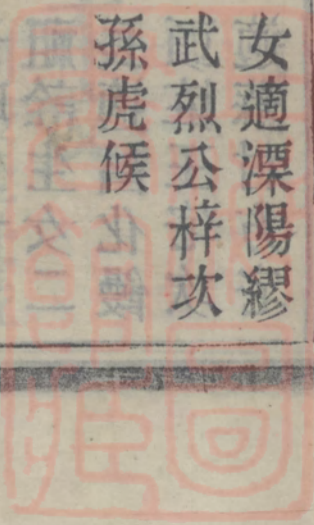 女適溧陽繆
武烈公梓次
孫虎侯